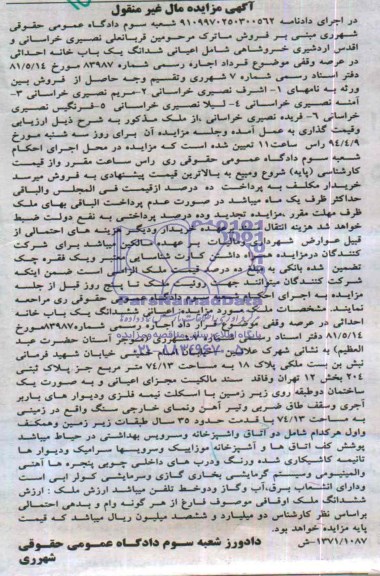 آگهی مزایده مال غیر منقول
در اجرای دادنامه ۹۱۰۹۹۷۰۲۵۰۳۰۰۵۶۲ شعبه سوم دادگاه عمومی حقوقی
شهرری مبنی بر فروش ماترک مرحومین قربانعلی نصیری خراسانی و
اقدس اردشیری خروشاهی شامل اعیانی ششدانگ یک باب خانه احداثی
در عرصه وقفی موضوع قرداد اجاره رسمی شماره ۸۳۹۸۷ مورخ ۸۱/۵/۱۴
دفتر اسناد رسمی شماره ۷ شهرری وتقسیم وجه حاصل از فروش بین
ورثه به نامهای ۱- اشرف نصیری خراسانی ۲-مریم نصیری خراسانی ۳-
آمنه نصیری خراسانی ۴- لیلا نصیری خراسانی ۵-فرنگیس نصیری
خراسانی ۶- فریده نصیری خراسانی ،از ملک مذکور به شرح ذیل ارزیابی
وقیمت گذاری به عمل آمده وجلسه مزایده آن برای روز سه شنبه مورخ
۹۴/۴/۹ راس ساعت۱۱ تعیین شده است که مزایده در محل اجرای احکام
شعبه سوم دادگاه عمومی حقوقی ری راس ساعت مقرر واز قیمت
کارشناسی (پایه) شروع ومبیع به بالاترین قیمت پیشنهادی به فروش میرسد
خریدار مکلف به پرداخت ده درصد ازقیمت فی المجلس والباقی
حداکثر ظرف یک ماه میباشد در صورت عدم پرداخت الباقی بهای ملک
ظرف مهلت مقرر ،مزایده تجدید وده درصد پرداختی به نفع دولت ضبط
خواهد شد هزینه انتقال خریدار ودیگر هزینه های احتمالی از
قبیل عوارض شهرداری عهده میباشد برای شرکت
کنندگان درمزایده همراه داشتن کارت شناسایی معتبر ویک فقره چک
تضمین شده بانکی به مبلغ ده درصد قیمت ملک الزامی است ضمن اینکه
شرکت کنندگان میتوانند جهت تا پنج روز قبل از جلسه
مزایده به اجرای حقوقی ری مراجعه
نمایند مشخصات ششدانگ یک باب خانه
احداثی در عرصه وقفی موضوع قرار داد اجاره رسمی شماره۸۳۹۸۷مورخ
۸۱/۵/۱۴ دفتر اسناد رسمی آستان حضرت عبد
العظیم) به نشانی شهرک علایین خیابان شهید قرمانی
نبش بن بست ملکی پلاک ۱۸ به مساحت ۷۴/۱۳ متر مربع جز پلاک ثبتی
۲۰۴ بخش ۱۲ تهران وفاقد سند مالکیت مجزای اعیانی و به صورت یک
ساختمان دوطبقه روی زیر زمین با اسکلت نیمه فلزی ودیوار های باربر
آجری وسقف طاق ضربی وتیر آهن ونمای خارجی سنگ واقع در زمینی
به مساحت ۷۴/۱۳ با قدمت حدود ۳۵ سال طبقات زیر زمین وهمکف
واول هرکدام شامل دو اتاق واشپزخانه وسرویس بهداشتی در حیاط میباشد
پوشش کف اتاق ها و آشپزخانه موزاییک وسرویسها سرامیک ودیوار ها
تانیمه کاشیکاری شده ورنگ ودرب های داخلی چوبی پنجره ها آهنی
والمینیومی وسیستم گرمایشی بخاری گازی وسرمایشی کولر ابی است
ودارای انشعاب برق،آب وگاز ودوخط تلفن میباشد ارزش ملک : ارزش
ششدانگ ملک اوقافی موصوف فارغ از هر گونه وام و بدهی احتمالی
براساس نظر کارشناس دو میلیارد و ششصد میلیون ریال میباشد که قیمت
پایه مزایده خواهد بود.
۱۳۷۱/۱۰۸۷-ش دادورز شعبه سوم دادگاه عمومی حقوقی
شهرری